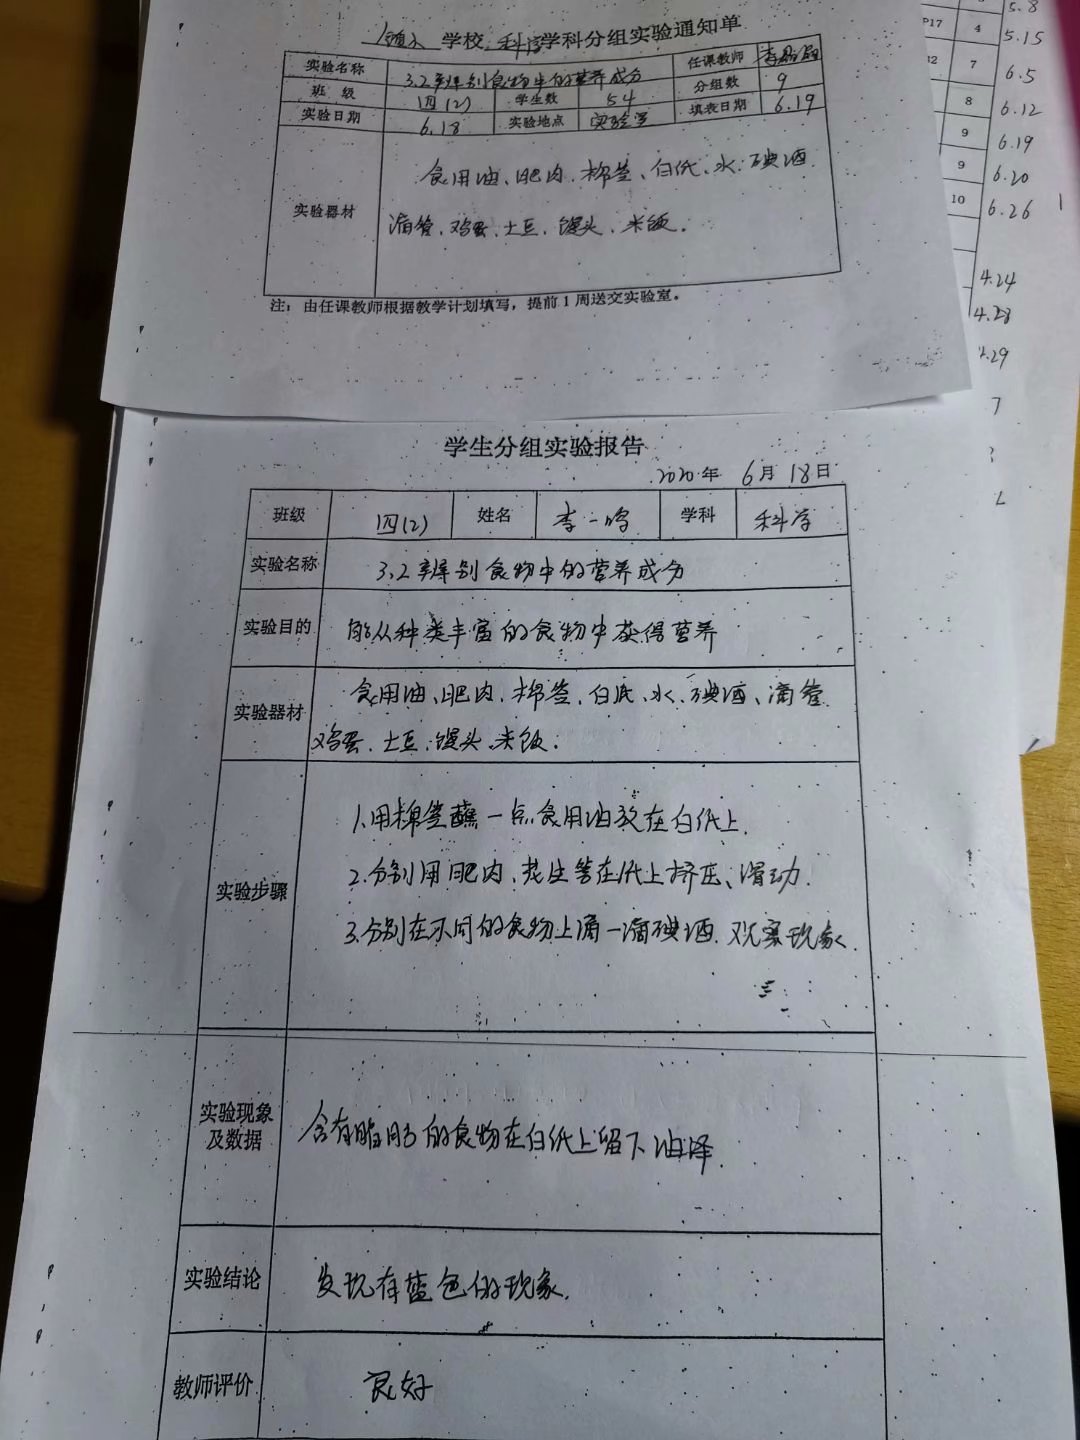 学校 科学学科分组实验通知单
实验名称 3.2辨别食物中的营养成分 任课教师
班 级 四(2) 学生数 54 分组数 9
实验日期 6.18 实验地点 实验室 填表日期 6.19
实验器材 食用油、肥肉、棉签、白纸、水、碘酒、
滴管、鸡蛋、土豆、馒头、米饭。
注：由任课教师根据教学计划填写，提前1周送交实验室。
P17 4 5.15
7 6.5
8 6.12
9 6.19
9 6.20
10 6.26
4.24
4.28
4.29
学生分组实验报告
2020年 6月 18日
班级 四(2) 姓名 李一鸣 学科 科学
实验名称 3.2辨别食物中的营养成分
实验目的 能从种类丰富的食物中获得营养
实验器材 食用油、肥肉、棉签、白纸、水、碘酒、滴管
鸡蛋、土豆、馒头、米饭.
实验步骤 1.用棉签蘸一点食用油放在白纸上.
2.分别用肥肉、花生等在纸上挤压、滑动.
3.分别在不同的食物上滴一滴碘酒.观察现象.
实验现象
及数据 含有脂肪的食物在白纸上留下油泽.
实验结论 发现有蓝色的现象.
教师评价 良好